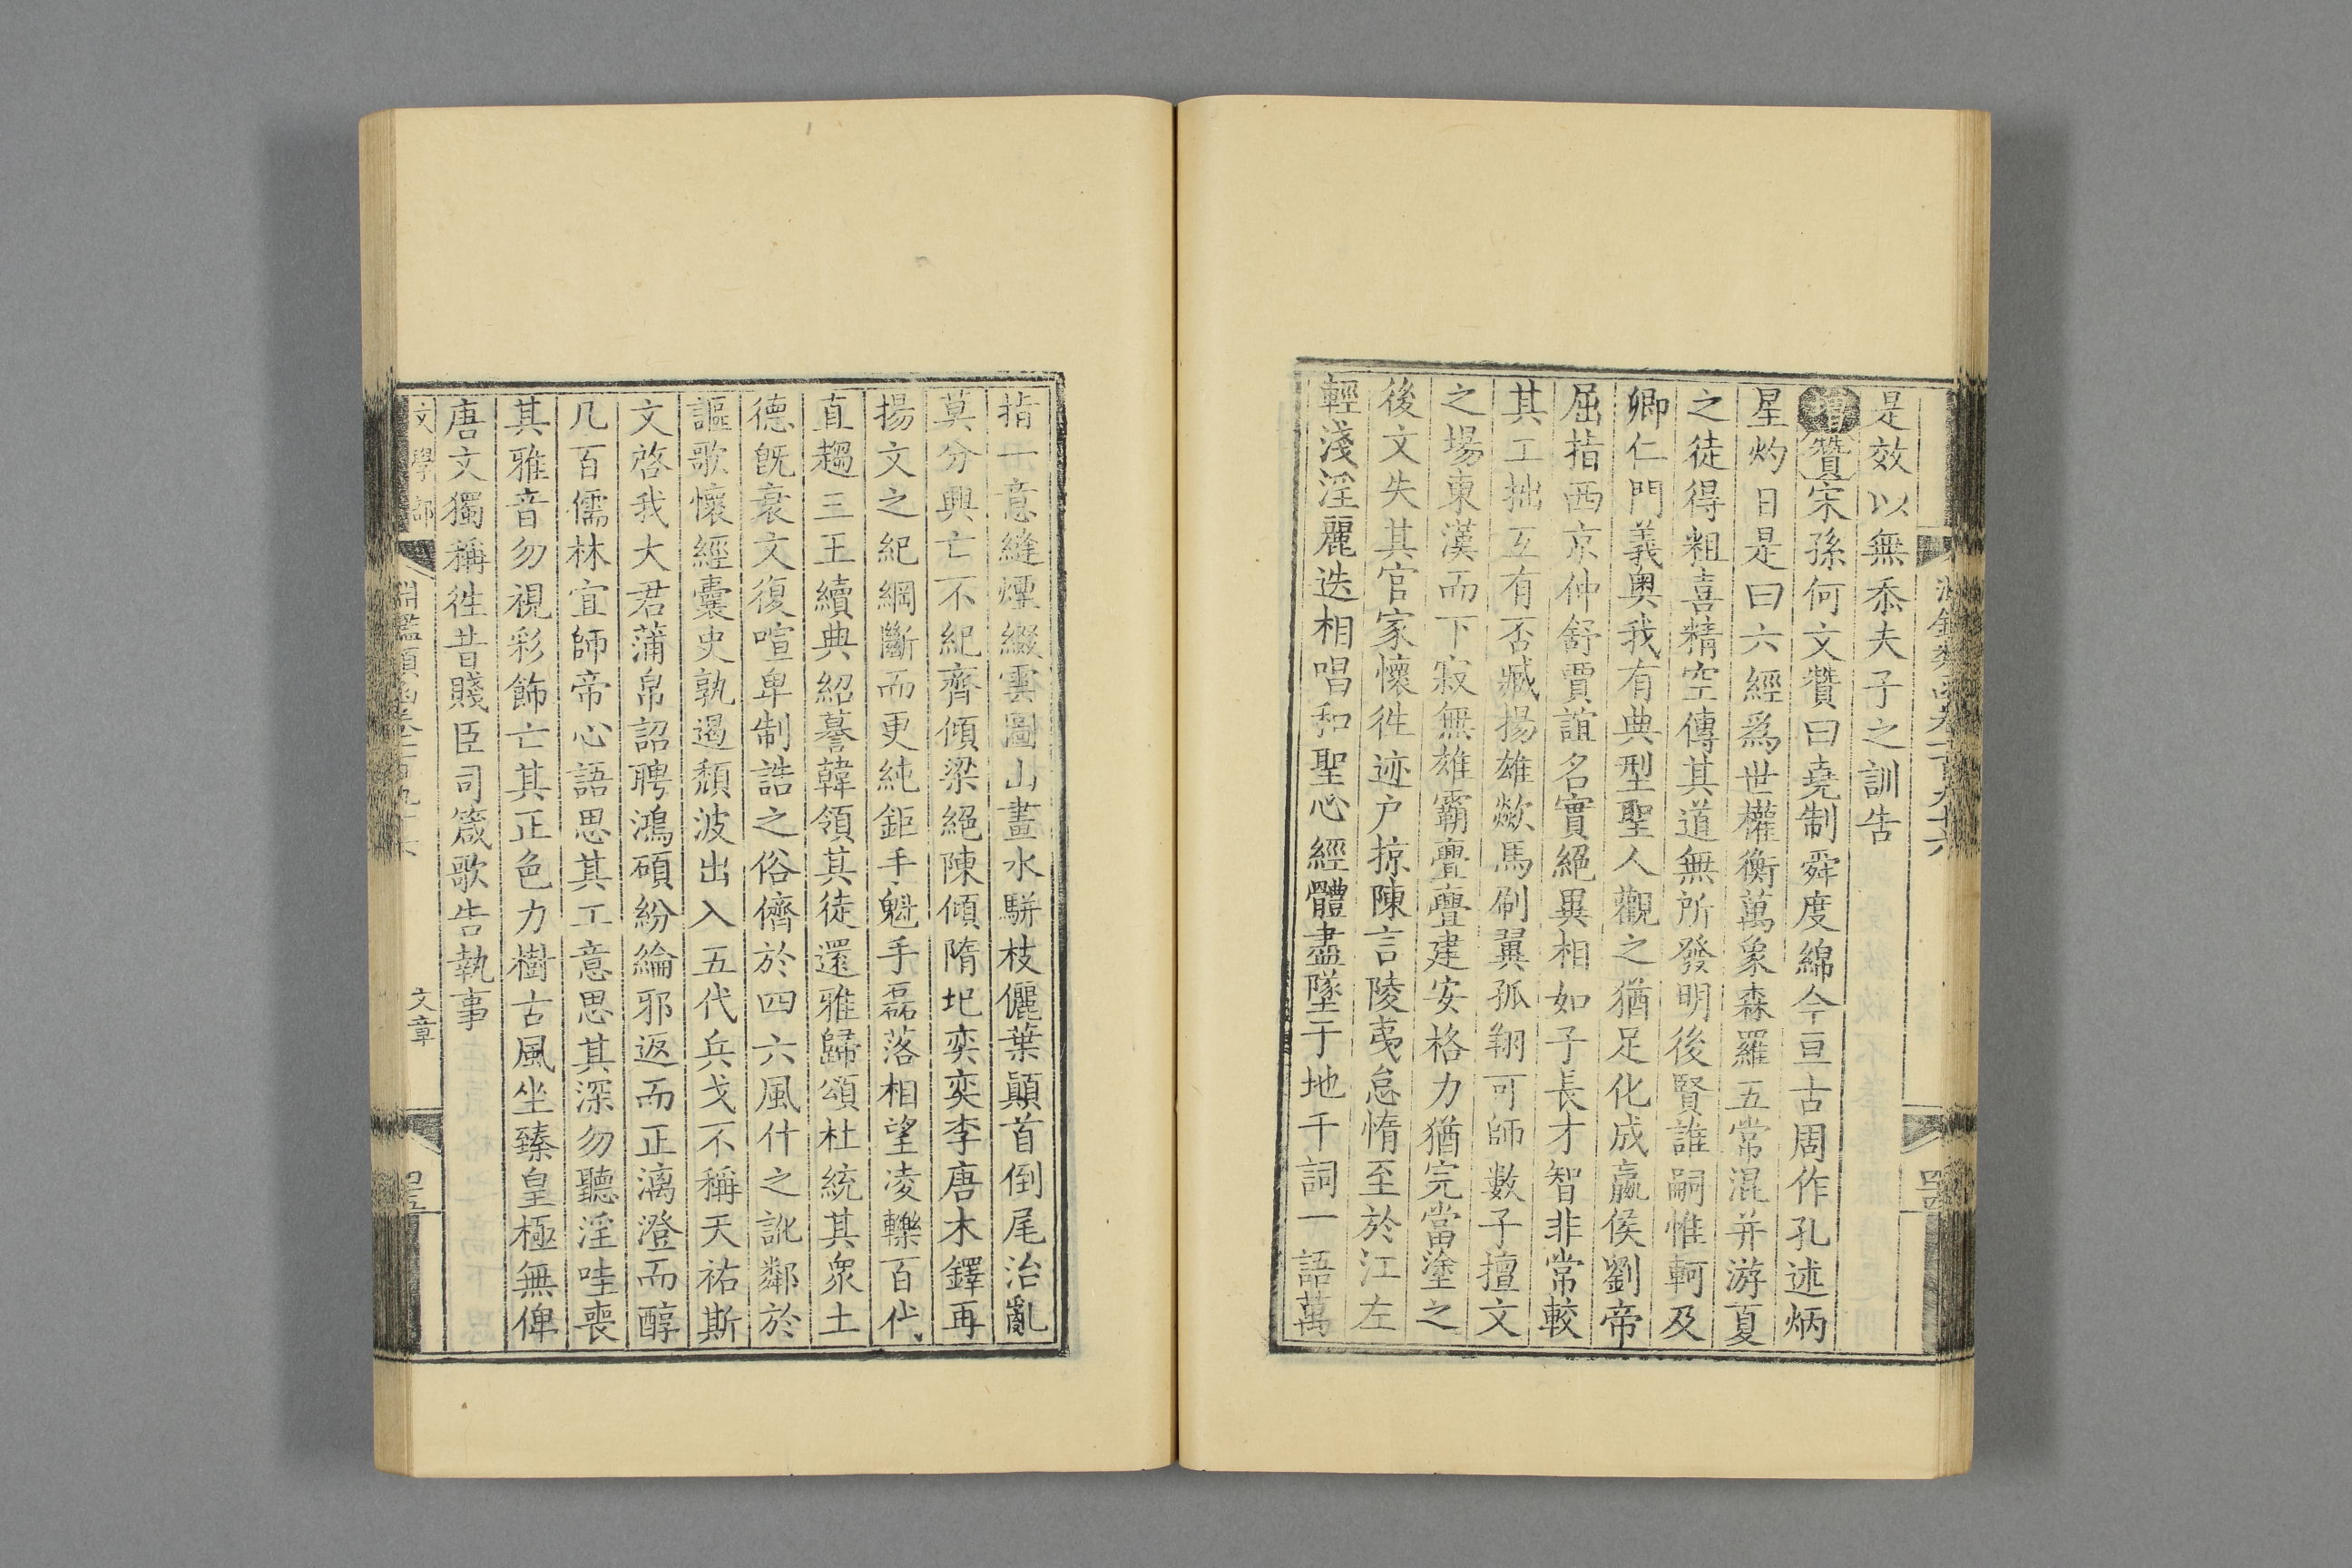 淵鑑類函卷一百九十六
是效以無忝夫子之訓告
增贊宋孫何文贊曰堯制舜度綿今亘古周作孔述炳
星灼日是曰六經爲世權衡萬象森羅五常混并游夏
之徒得粗喜精空傳其道無所發明後賢誰嗣惟軻及
卿仁門義奧我有典型聖人觀之猶足化成嬴侯劉帝
屈指西京仲舒賈誼名實絕異相如子長才智非常較
其工拙互有否臧揚雄欻焉刷翼孤翔可師數子擅文
之場東漢而下寂無雄霸亹亹建安格力猶完當塗之
後文失其官家懷徃迹户掠陳言陵夷怠惰至於江左
輕淺淫麗迭相唱和聖心經體盡墜于地千詞一語萬
指一意縫煙綴雲圖山畫水駢枝儷葉顛首倒尾治亂
莫分興亡不紀齊傾梁絕陳傾隋圮奕奕李唐木鐸再
揚文之紀綱斷而更純鉅手魁手磊落相望凌轢百代
直趨三王續典紹謩韓領其徒還雅歸頌杜統其衆土
德旣衰文復喧卑制誥之俗儕於四六風什之訛鄰於
謳歌懷經囊史孰遏頹波出入五代兵戈不稱天祐斯
文啓我大君蒲帛詔聘鴻碩紛綸邪返而正漓澄而醇
凡百儒林宜師帝心語思其工意思其深勿聽淫哇喪
其雅音勿視彩飾亡其正色力樹古風坐臻皇極無俾
唐文獨稱徃昔賤臣司箴歌告執事
文學部
淵鑑類函卷一百九十六
文章